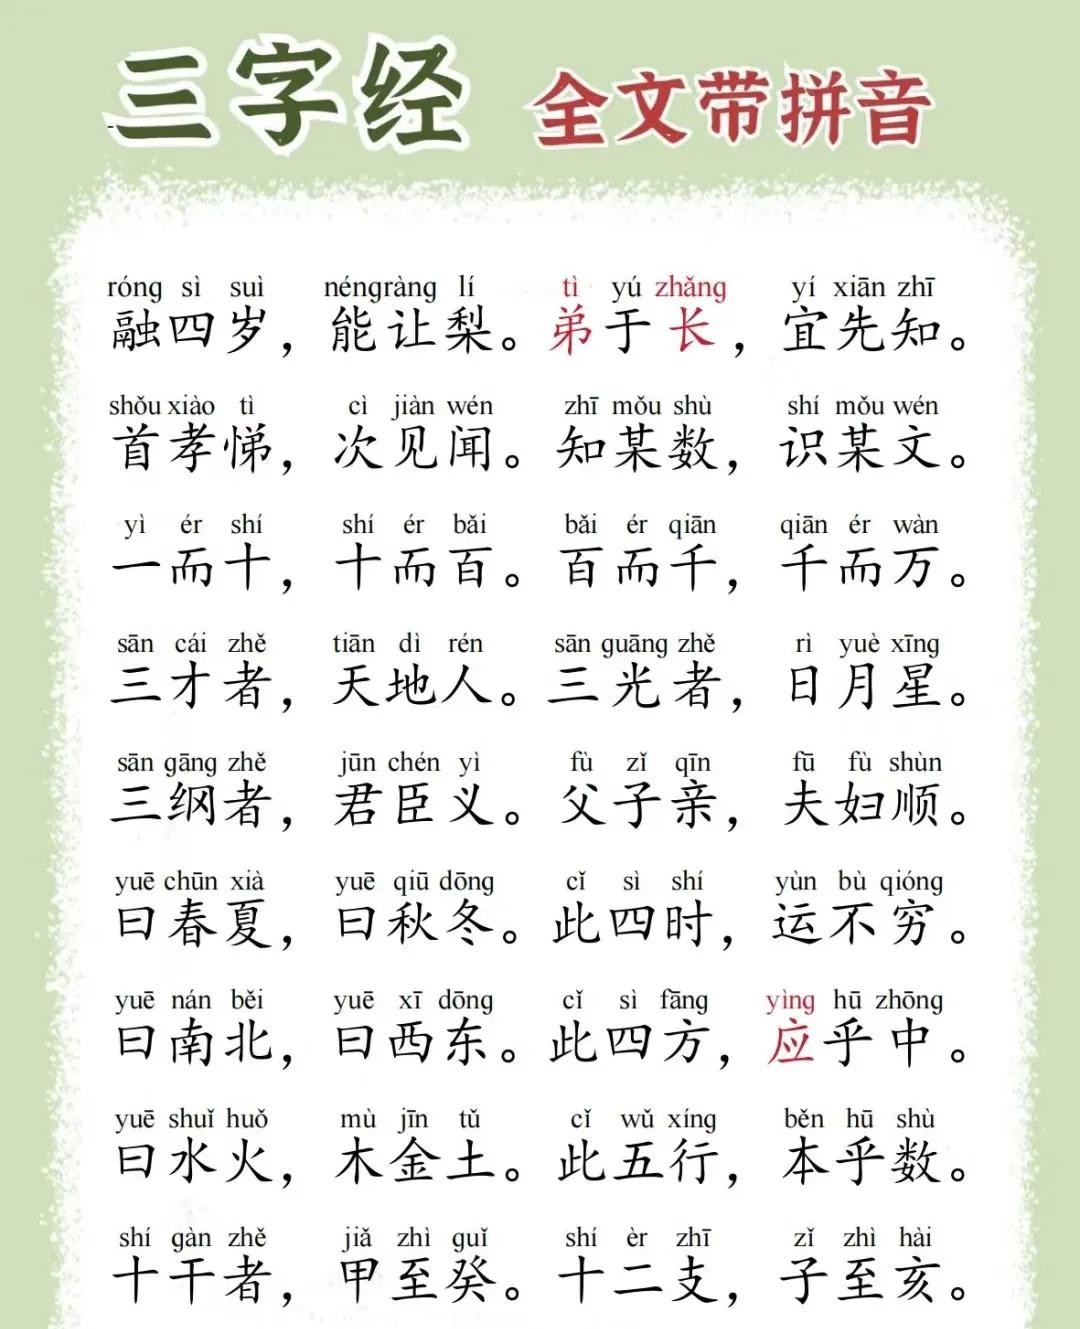 三字经 全文带拼音
róng sì suì néngràng lí tì yú zhǎng yí xiān zhī
融四岁，能让梨。弟于长，宜先知。
shǒu xiào tì cì jiàn wén zhī mǒu shù shí mǒu wén
首孝悌，次见闻。知某数，识某文。
yì ér shí shí ér bǎi bǎi ér qiān qiān ér wàn
一而十，十而百。百而千，千而万。
sān cái zhě tiān dì rén sān guāng zhě rì yuè xīng
三才者，天地人。三光者，日月星。
sān gāng zhě jūn chén yì fù zǐ qīn fū fù shùn
三纲者，君臣义。父子亲，夫妇顺。
yuē chūn xià yuē qiū dōng cǐ sì shí yùn bù qióng
曰春夏，曰秋冬。此四时，运不穷。
yuē nán běi yuē xī dōng cǐ sì fāng yìng hū zhōng
曰南北，曰西东。此四方，应乎中。
yuē shuǐ huǒ mù jīn tǔ cǐ wǔ xíng běn hū shù
曰水火，木金土。此五行，本乎数。
shí gàn zhě jiǎ zhì guǐ shí èr zhī zǐ zhì hài
十干者，甲至癸。十二支，子至亥。